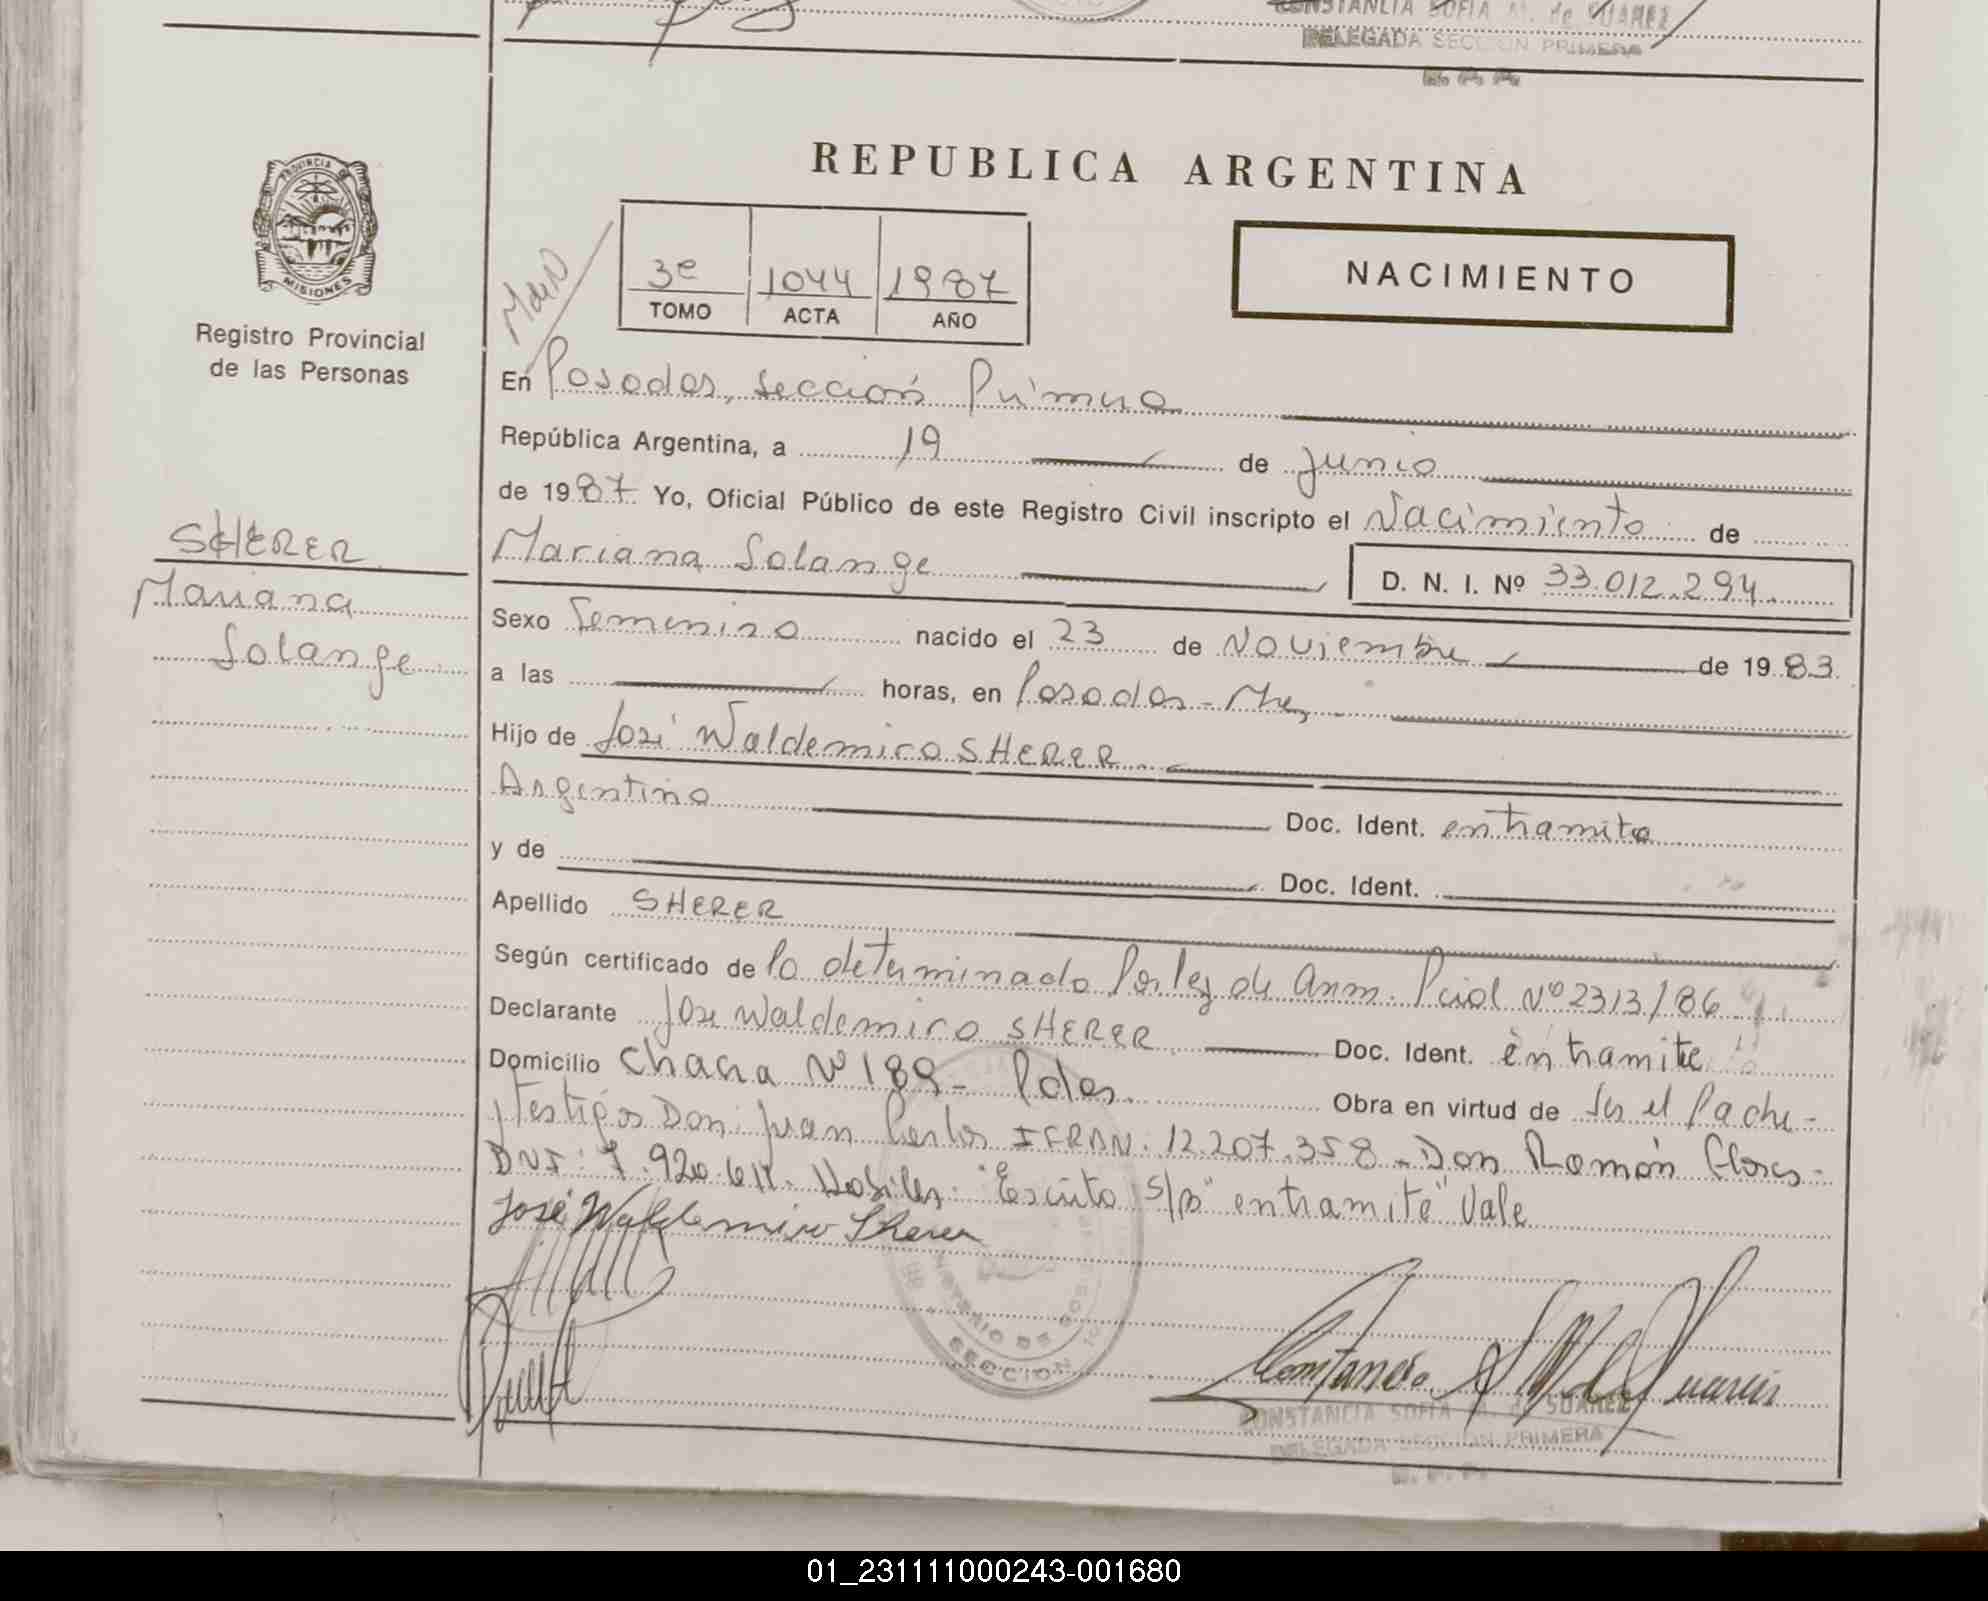 CONSTANCIA SOFIA M. de SUAREZ
DELEGADA SECCION PRIMERA
PROVINCIA DE
MISIONES
Registro Provincial
de las Personas
SHERER
Mariana
Solange
REPUBLICA ARGENTINA
3e 1044 1987
TOMO ACTA AÑO
NACIMIENTO
En Posadas, sección Primera
República Argentina, a 19 de junio
de 1987 Yo, Oficial Público de este Registro Civil inscripto el Nacimiento de
Mariana Solange D. N. I. Nº 33.012.294
Sexo Femenino nacido el 23 de Noviembre de 1983
a las horas, en Posadas - Mnes
Hijo de José Waldemiro SHERER
Argentino Doc. Ident. en tramite
y de Doc. Ident.
Apellido SHERER
Según certificado de lo determinado Por ley de Anm. Pcial Nº 2313/86
Declarante Jose Waldemiro SHERER Doc. Ident. en tramite
Domicilio Chacra Nº 189 - Pdas. Obra en virtud de Ser el Padre -
Testigos Don: Juan Carlos IFRAN. 12.207.358 - Don Román Flores -
DNI: 7.920.611. Hábiles. "Escrito s/b" en tramite" Vale
José Waldemiro Sherer
SECCION 1
Constancia S M de Suarez
CONSTANCIA SOFIA M. de SUAREZ
DELEGADA SECCION PRIMERA
01_231111000243-001680